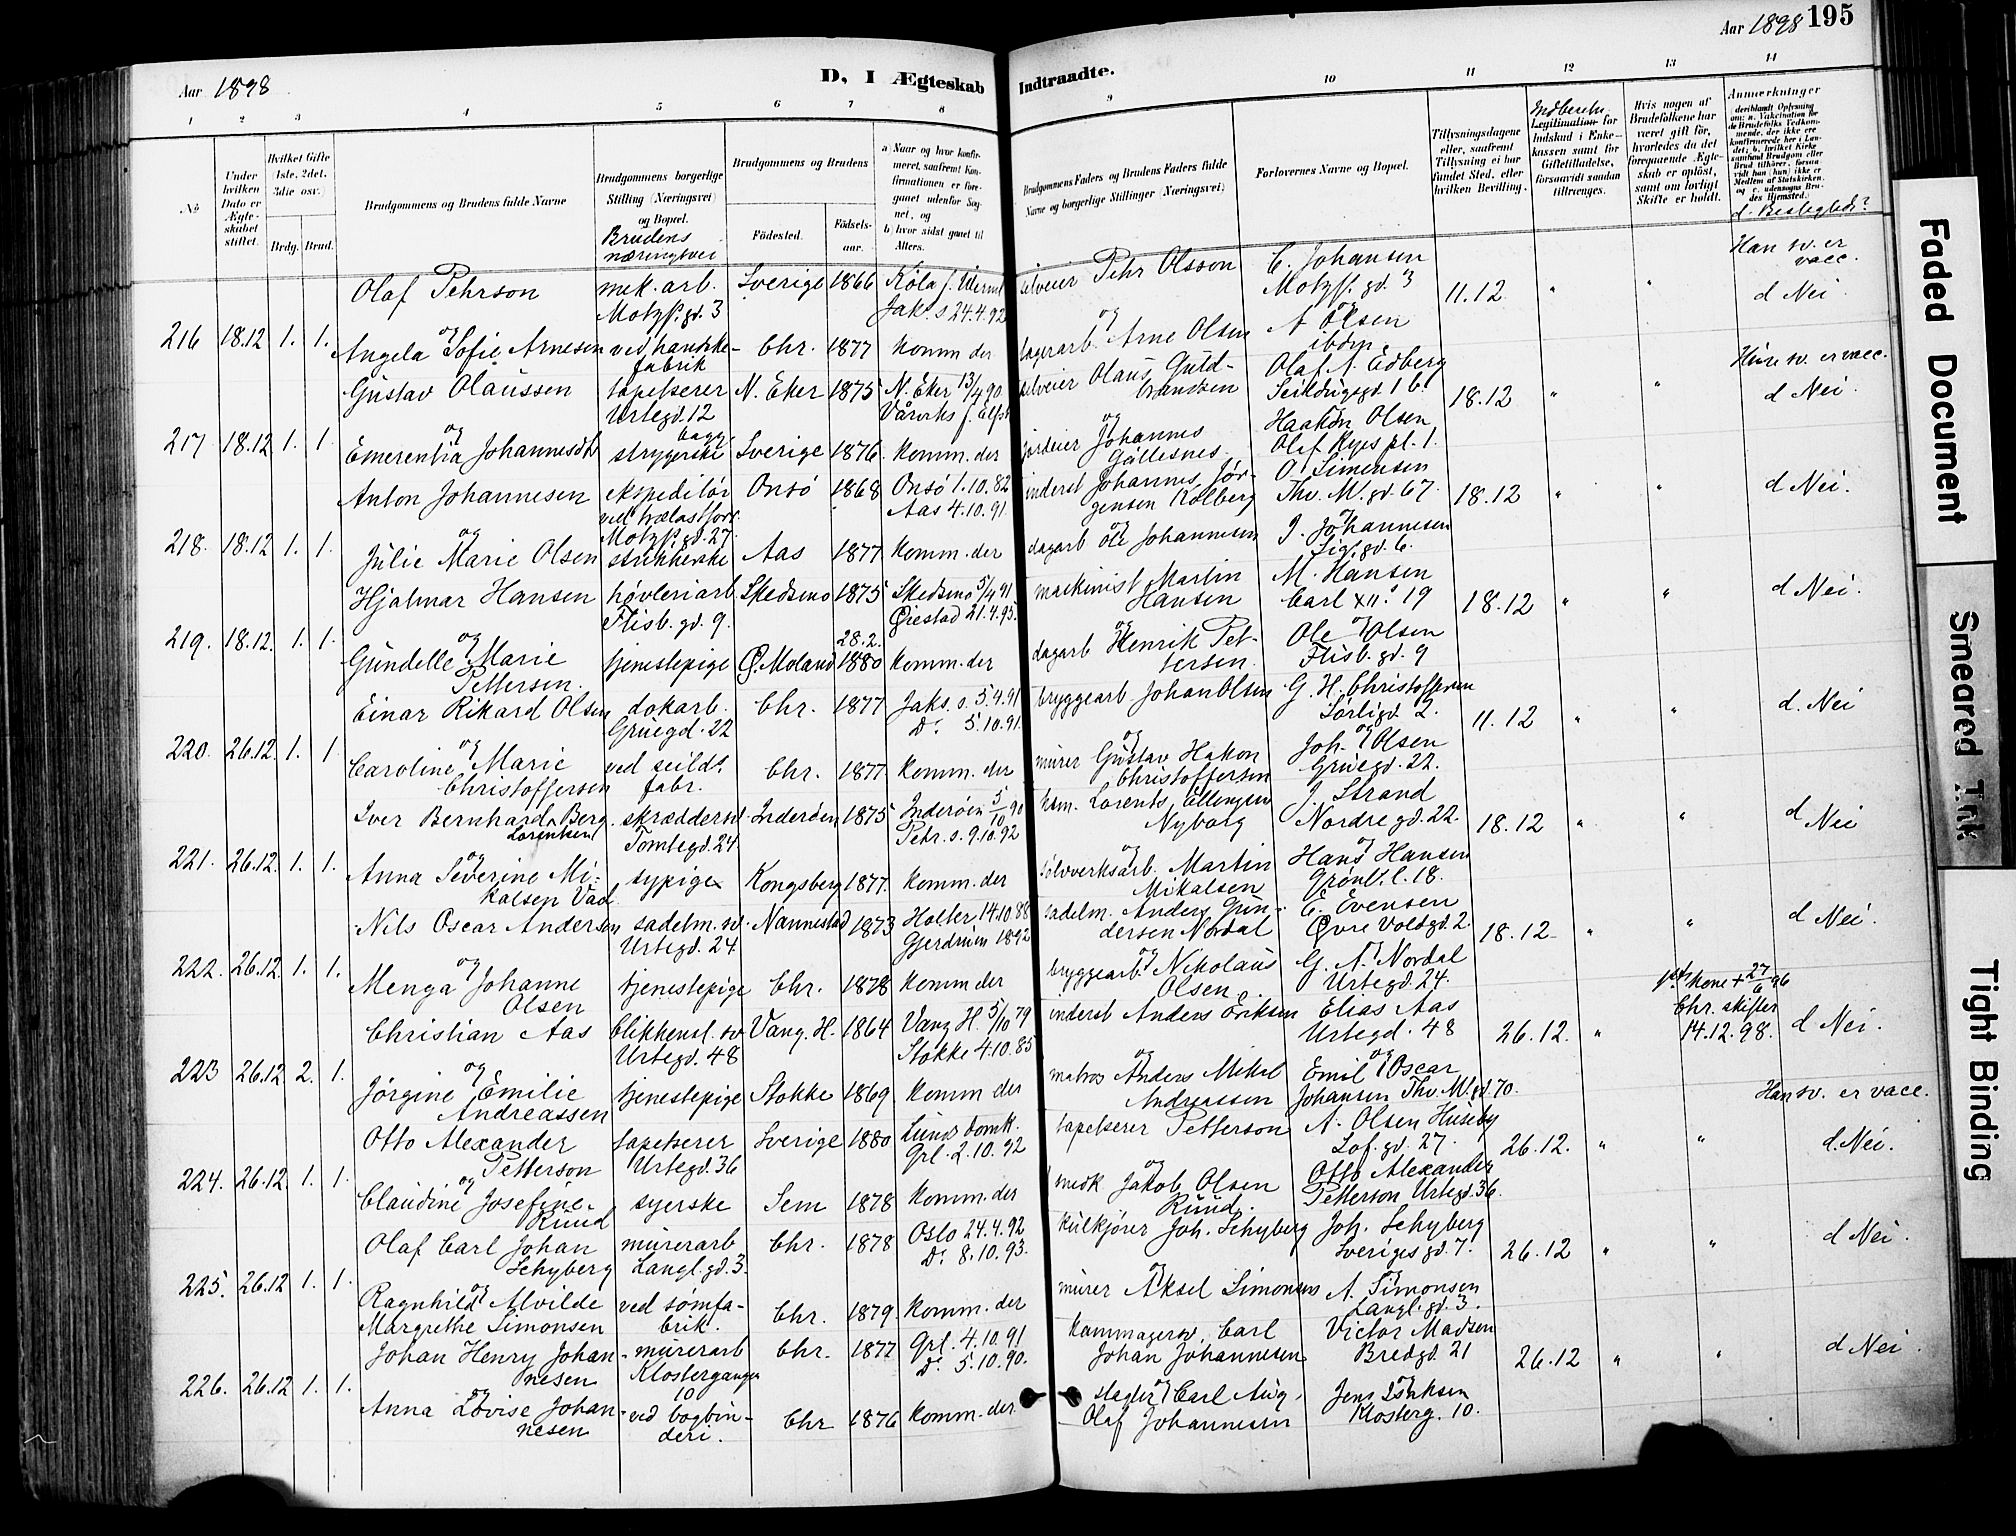 Aar 1898
D, I Ægteskab Indtraadte.
Aar 1898 195
1 2 3 4 5 6 7 8 9 10 11 12 13 14
No
Under hvilken Dato er Ægteskabet stiftet.
Hvilket Gifte 1ste, 2det, 3die osv.)
Brdg. Brud.
Brudgommens og Brudens fulde Navne
Brudgommens borgerlige Stilling (Næringsvei) og Bopæl.
Brudens næringsvei
Brudgommens og Brudens
Fødested.
Fødselsaar.
a) Naar og hvor konfirmeret, saafremt Konfirmationen er foregaaet udenfor Sognet, og
b) hvor sidst gaaet til Alters.
Brudgommens Faders og Brudens Faders fulde Navne og borgerlige Stillinger (Næringsvei)
Forlovernes Navne og Bopæl.
Tillysningsdagene eller, saafremt Tillysning ei har fundet Sted, efter hvilken Bevilling.
Indberetn.
Legitimation for Indskud i Enkekassen samt for Giftetilladelse, forsaavidt saadan tiltrænges.
Hvis nogen af Brudefolkene har været gift før, hvorledes da det foregaaende Ægteskab er opløst, samt om lovligt Skifte er holdt.
Anmærkninger
deriblandt Oplysning om: a. Vaksination for de Brudefolks Vedkommende, der ikke ere konfirmerede her i Landet; b. hvilket Kirkesamfund Brudgom eller Brud tilhører, forsaavidt han (hun) ikke er Medlem af Statskirken, og c. udensogns Brudes Hjemsted.
d. Beslegtede?
216 18.12 1. 1.
Olaf Pehrson mek. arb. Motzf. gd. 3 Sverige 1866 Køla f. Jak. s 24.4.92 selveier Pehr Olsson C. Johansen Motzf. gd. 3 11.12 " " Han sv. er vacc. d Nei
og
Angela Sofie Arnesen ved hanskefabrik Chr. 1877 komm. der lagerarb. Arne Olsen A Olsen ibdm
217 18.12 1. 1
Gustav Olaussen tapetserer Urtegd. 12 N. Eker 1875 N. Eker 13/4 90 selveier Olaus Guldbrandsen Olaf A. Edberg 18.12 " " Hun sv. er vacc. d Nei.
og
Emerentia Johannesdtr strygerske Sverige 1876 komm. der jordeier Johannes Gällesnes Haakon Olsen Olaf Ryes pl. 1.
218. 18.12 1. 1.
Anton Johannesen ekspeditør ved trælastforr. Motzf. gd. 27. Onsö 1868 Onsö 1.10.82 Aas 4.10.91. inderst Johannes Jørgensen Kolberg O. Simensen Thv. M. gd. 67. 18.12 " " d Nei.
og
Julie Marie Olsen strikkerske Aas 1877 komm. der dagarb Ole Johannesen J. Johannesen Sig. gd. 6.
219. 18.12. 1. 1.
Hjalmar Hansen høvleriarb Flisb. gd. 9. Skedsmo 1875 Skedsmo 5/4 91 Øiestad 21.4.95. maskinist Martin Hansen M. Hansen Carl XII. 19 18.12 " " d Nei.
og
Gundelle Marie Pettersen. tjenestepige Ø. Moland 28.2. 1880 komm. der dagarb Henrik Pettersen. Ole Olsen Flisb. gd. 9
220. 26.12. 1. 1.
Einar Rikard Olsen dokarb. Gruegd. 22 Chr. 1877 Jaks. s. 5.4.91 Do 5.10.91. bryggearb Johan Olsen G. H. Christoffersen Sørligd 2. 11.12 " " d. Nei
og
Caroline Marie Christoffersen ved seilds. fabr. Chr. 1877. komm. der murer Gustav Hakon Christoffersen Joh. Olsen Gruegd. 22.
221. 26.12. 1. 1.
Iver Bernhard Berg Lorentsen skræddersv. Tomtegd. 24 Inderöen 1875 Inderöen 5/10 90 Petr. s. 9.10.92 hsm. Lorents Ellingsen Nyborg J. Strand Nordregd. 22 18.12 " " d Nei
og
Anna Severine Mikalsen Vad. sypige Kongsberg 1877. komm. der sölvverksarb. Martin Mikalsen Hans Hansen Grønl. l. 18.
222. 26.12 1. 1.
Nils Oscar Andersen sadelm. sv. Urtegd. 24 Nannestad 1873 Holter 14.10.88 Gjerdrum 1892 sadelm. Anders Gundersen Nordal E. Evensen Øvre Voldgd. 2. 18.12 " " d Nei.
og
Menga Johanne Olsen tjenestepige Chr. 1878 komm der bryggearb. Nikolaus Olsen G. A. Nordal Urtegd. 24.
223 26.12. 2. 1.
Christian Aas blikkensl. sv Urtegd. 48 Vang. H. 1864 Vang H. 5/10 79 Stokke 4.10.85 inderst Anders Eriksen Elias Aas Urtegd. 48 26.12. " 1ste kone + 27/6 96 Chr. skifter 14.12.98. d Nei.
og
Jörgine Emilie Andreassen tjenestepige Stokke 1869 komm der matros Anders Mikal Andreassen Emil Oscar Johansen Thv. M. gd 70.
224. 26.12. 1. 1.
Otto Alexander Petterson tapetserer Urtegd. 36 Sverige 1880 Lunds domk. Grl. 2.10.92 tapetserer Petterson A. Olsen Huseby Lof. gd. 27. 26.12. " " Han sv. er vacc. d. Nei.
og
Claudine Josefine Ruud syerske Sem 1878 komm. der smed Jakob Olsen Ruud. Otto Alexander Petterson Urtegd. 36.
225. 26.12 1. 1.
Olaf Carl Johan Schyberg murerarb Langl. gd. 3. Chr. 1878 Oslo 24.4.92 Do 8.10.93. kulkjører Joh. Schyberg Joh. Schyberg Sverigesgd. 7. 26.12 " " d Nei.
og
Ragnhild Alvilde Margrethe Simonsen ved sømfabrik. Chr. 1879. komm. der murer Aksel Simonsen A. Simonsen Langl. gd. 3.
226. 26.12 1. 1.
Johan Henry Johannesen murerarb Klostergangen 10 Chr. 1877 Grl. 4.10.91 Do 5.10.90. kammagersv. Carl Johan Johannesen Victor Madsen Bredgd. 21 26.12 " " d Nei.
og
Anna Lovise Johannesen ved bogbinderi. Chr 1876 komm. der slagter Carl Aug. Olaf Johannesen Jens Isaksen Klosterg. 10.
Faded Document
Smeared Ink
Tight Binding